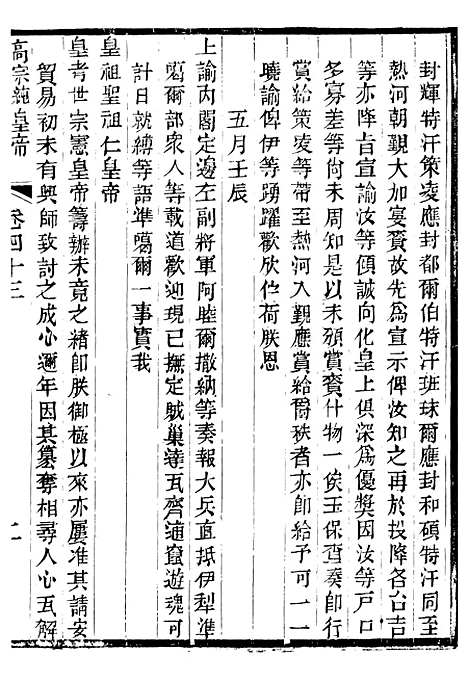 封輝特汗策凌應封都爾伯特汗班珠爾應封和碩特汗同至
熱河朝覲大加宴賚故先為宣示俾汝知之再於投降各台吉
等亦降㫖宣諭汝等傾誠向化皇上俱深為優獎因汝等戶口
多寡差等尚未周知是以未頒賞賚什物一俟玉保查奏即行
賞給策凌等帶至熱河入覲應賞給爵秩者亦即給予可一一
曉諭俾伊等踴躍歡欣仁荷朕恩
五月壬辰
上諭內閣定邊左副將軍阿睦爾撒納等奏報大兵直抵伊犁準
噶爾部衆人等載道歡迎現已撫定賊巢達瓦齊逋竄遊魂可
計日就縛等語準噶爾一事實我
皇祖聖祖仁皇帝
皇考世宗憲皇帝籌辦未竟之緒即朕御極以來亦屢准其請安
貿易初未有興師致討之成心邇年因其篡奪相尋人心瓦解
高宗純皇帝 卷四十三 二